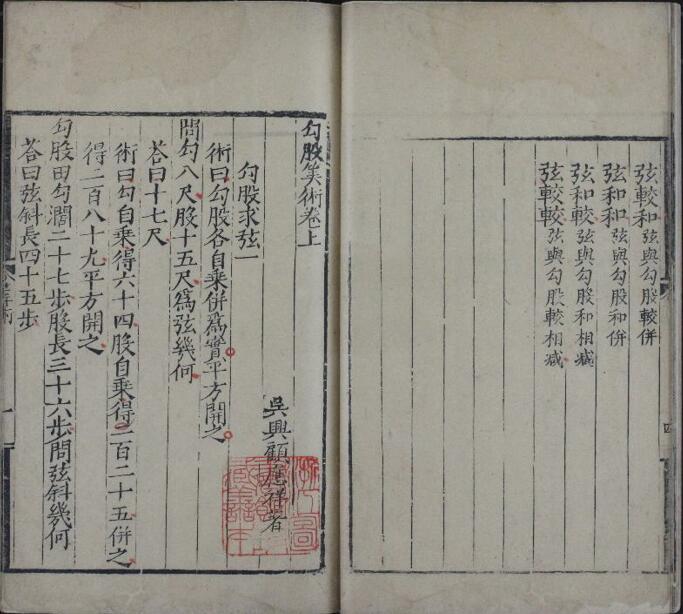 弦較和弦與勾股較併
弦和和弦與勾股和併
弦和較弦與勾股和相減
弦較較弦與勾股較相減
四
勾股筭術卷上
吳興顧應祥著
勾股求弦一
術曰勾股各自乘併爲實平方開之
問勾八尺股十五尺爲弦幾何
荅曰十七尺
術曰勾自乘得六十四股自乘得二百二十五併之
得二百八十九平方開之
勾股田勾濶二十七步股長三十六步問弦斜幾何
荅曰弦斜長四十五步
一